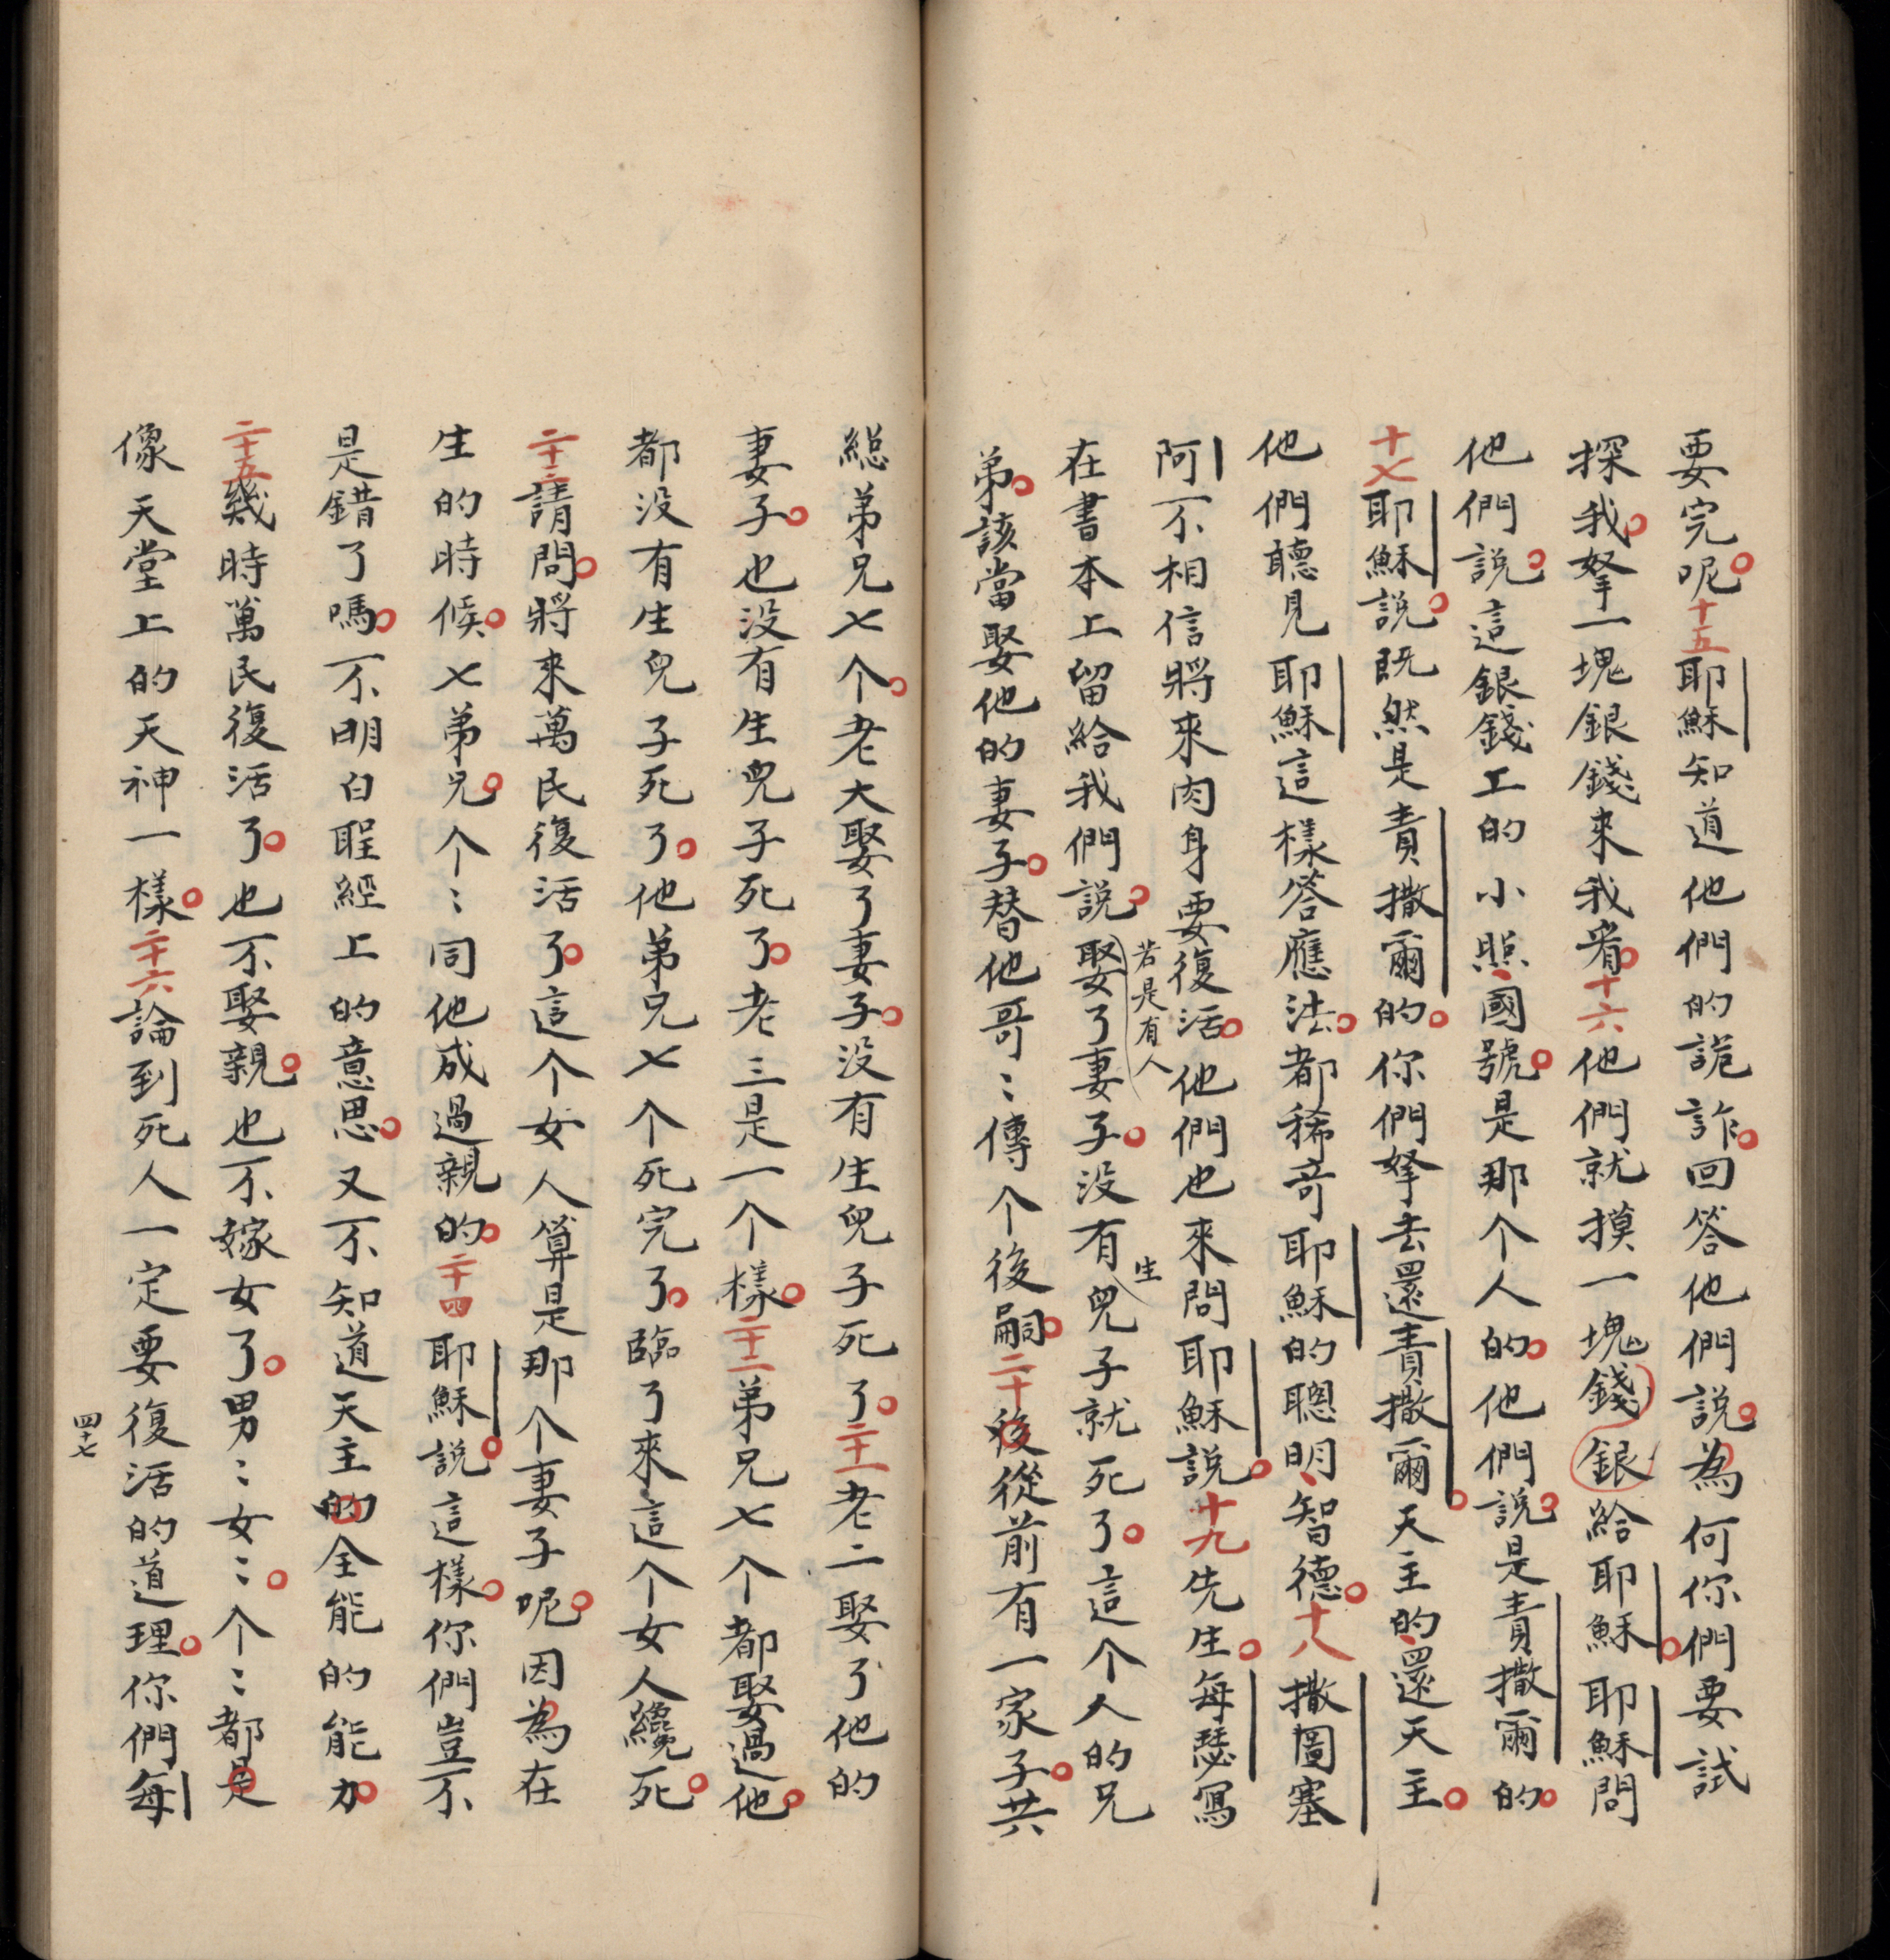 要完呢。十五耶穌知道他們的詭詐。回答他們說。為何你們要試
探我。拏一塊銀錢來我看。十六他們就摸一塊錢銀給耶穌。耶穌問
他們說。這銀錢上的小照、國號。是那个人的。他們說。是責撒爾的。
十七耶穌說。既然是責撒爾的。你們拏去還責撒爾。天主的、還天主。
他們聽見耶穌這樣答應法。都稀奇耶穌的聰明、智德。十八撒圖塞
阿不相信將來肉身要復活。他們也來問耶穌說。十九先生。每瑟寫
在書本上留給我們說。娶了妻子。沒有兒子就死了。這个人的兄
若是有人
生
弟。該當娶他的妻子。替他哥〻傳个後嗣。二十後從前有一家子。共
總弟兄七个。老大娶了妻子。沒有生兒子死了。二十一老二娶了他的
妻子。也沒有生兒子死了。老三是一个樣。二十二弟兄七个都娶過他。
都沒有生兒子死了。他弟兄七个死完了。臨了來這个女人纔死。
二十三請問。將來萬民復活了。這个女人算是那个妻子呢。因為在
生的時候。七弟兄。个〻同他成過親的。二十四耶穌說。這樣。你們豈不
是錯了嗎。不明白聖經上的意思。又不知道天主的全能的能力。
二十五幾時萬民復活了。也不娶親。也不嫁女了。男〻女〻。个〻都是
像天堂上的天神一樣。二十六論到死人一定要復活的道理。你們每
四十七